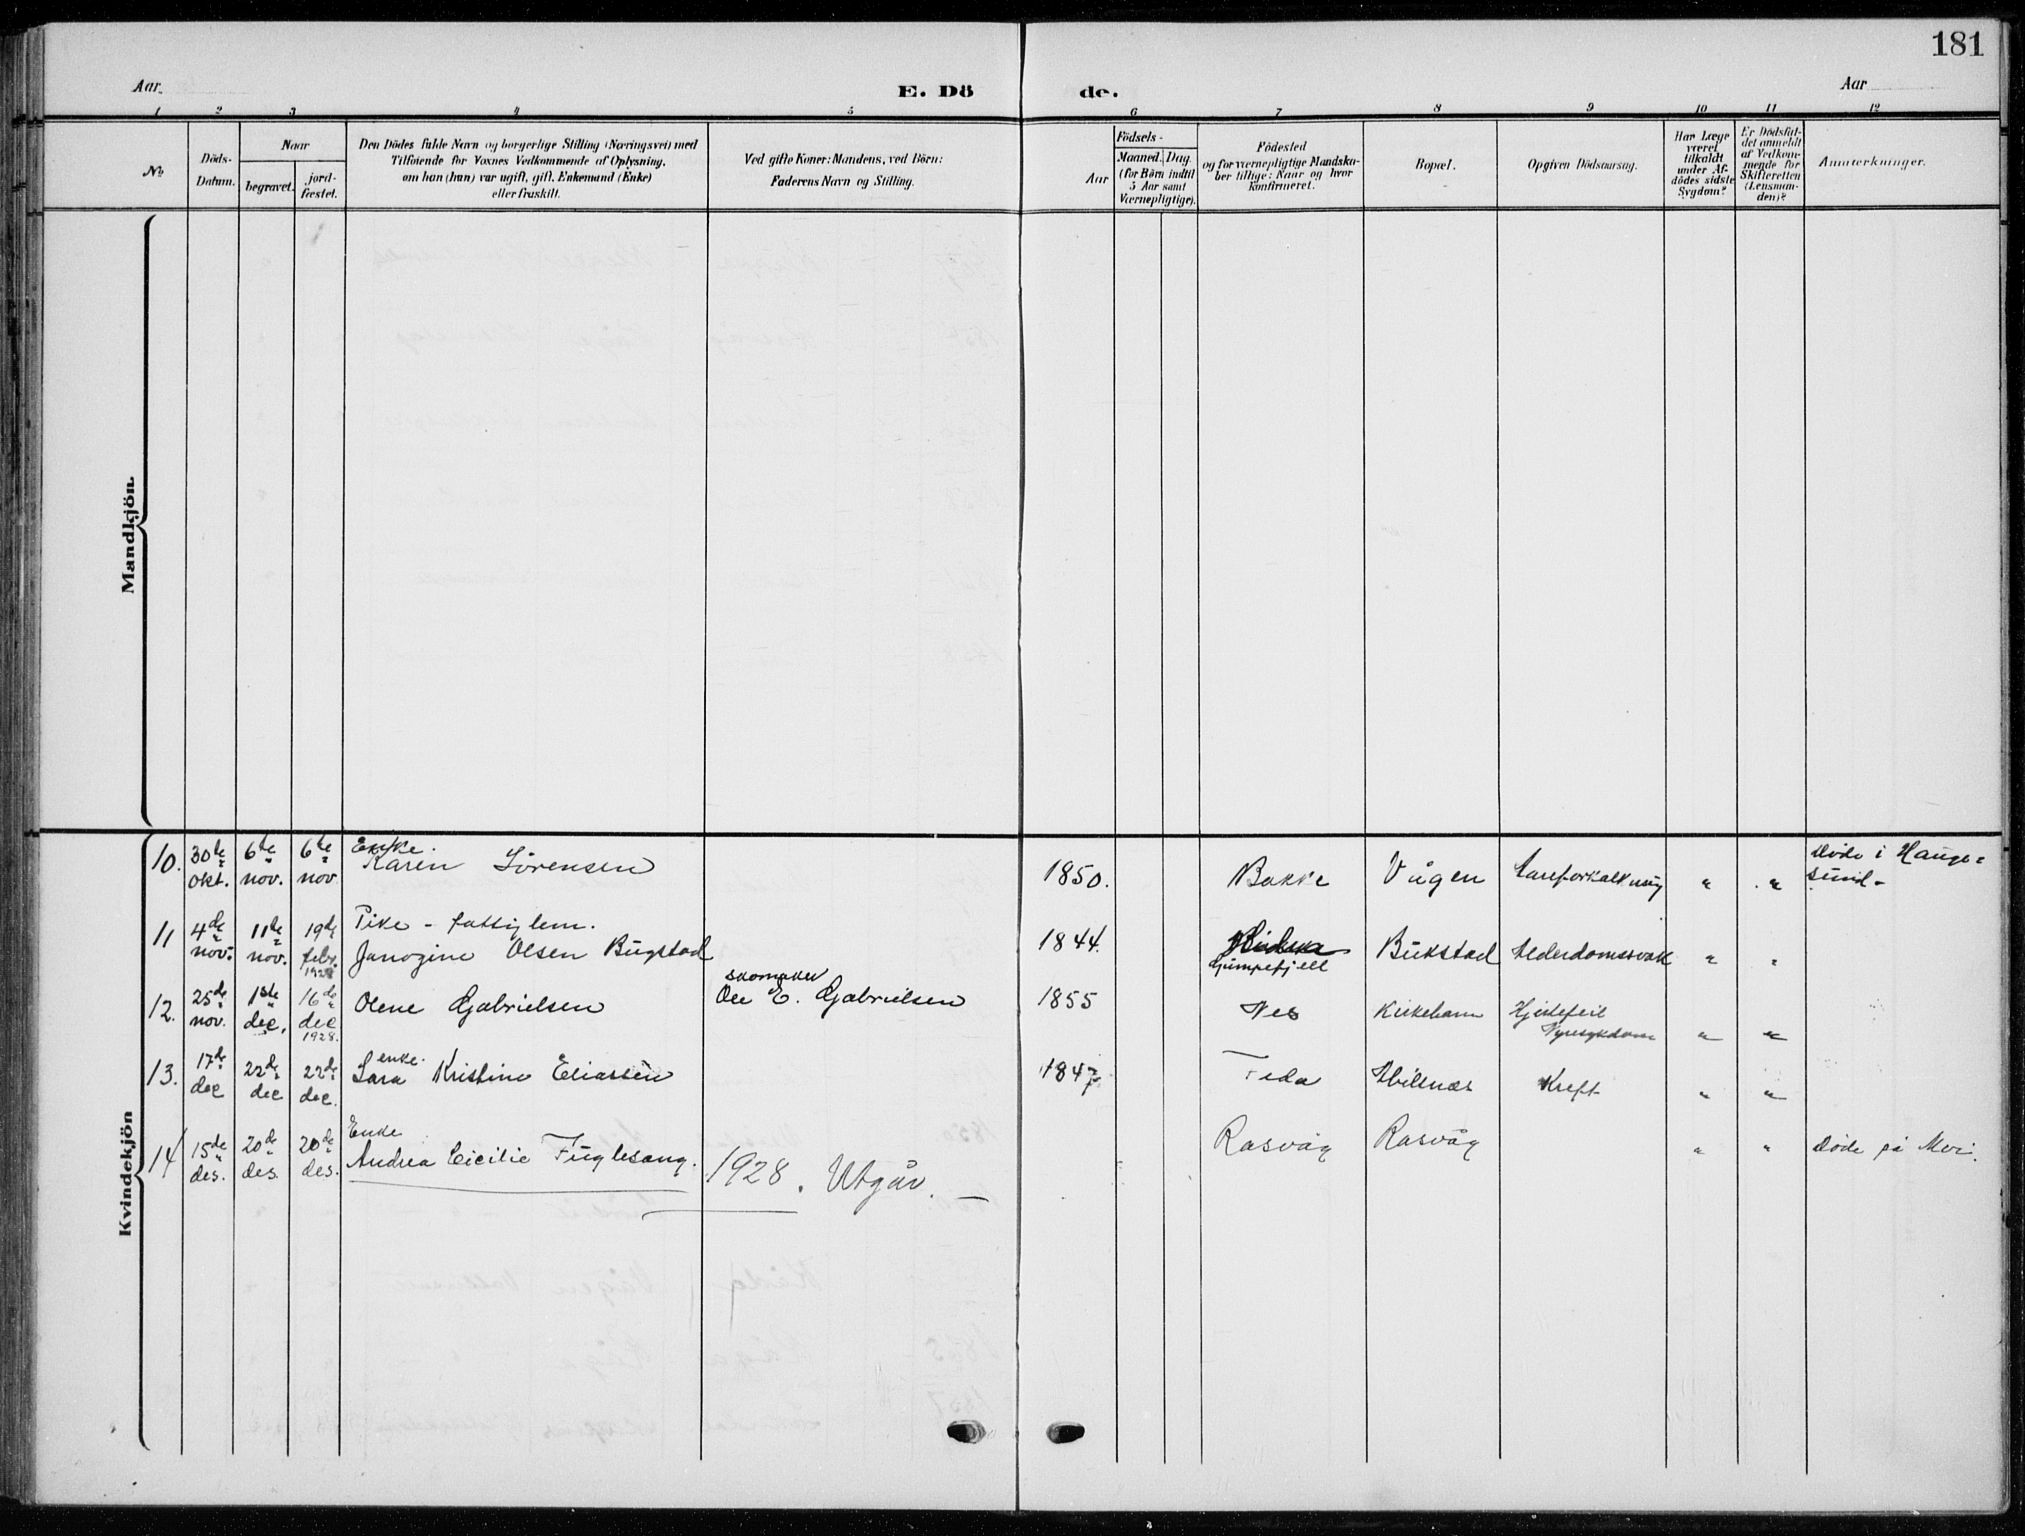 181
Aar
E. Döde.
Aar
1 2 3 4 5 6 7 8 9 10 11 12
No
Döds-Datum.
Naar
begravet.
jordfæstet.
Den Dödes fulde Navn og borgerlige Stilling (Næringsvei) med
Tilföiende for Voxnes Vedkommende af Oplysning,
om han (hun) var ugift, gift, Enkemand (Enke)
eller fraskilt.
Ved gifte Koner: Mandens, ved Börn:
Faderens Navn og Stilling.
Födsels-
Aar
Maaned. Dag.
(for Börn indtil
5 Aar samt
Værnepligtige).
Födested
og for værnepligtige Mandskaber tillige: Naar og hvor
konfirmeret.
Bopæl.
Opgiven Dödsaarsag.
Har Læge
været
tilkaldt
under Afdödes sidste
Sygdom?
Er Dödsfaldet anmeldt
af Vedkommende for
Skifteretten
(Lensmanden)?
Anmærkninger.
Mandkjön.
Kvindekjön
10. 30te okt. 6te nov. 6te nov. Enke. Karen Sörensen 1850. Bakke Vågen Aareforkalkning " " Døde i Haugesund-
11 4de nov. 11te nov. 19de febr. 1928 Pike - fattiglem. Janogine Olsen Bugstad 1844. Gumpefjell Bukstad Alderdomssvak " "
12. 25de nov. 1ste dec. 16de dec 1928. Olene Gabrielsen skomaker Ole E. Gabrielsen 1855 Nes Kirkehavn Hjertefeil Nyresykdom " "
13. 17de dec 22de dec 22de dec. enke. Sara Kristine Eliassen 1847 Feda Hillsnæs Kreft " "
14 15de des. 20de des. 20de des. Enke Andrea Cicilie Fuglesang. Rasvåg Rasvåg " " Døde på Moi.
1928. Utgår. —